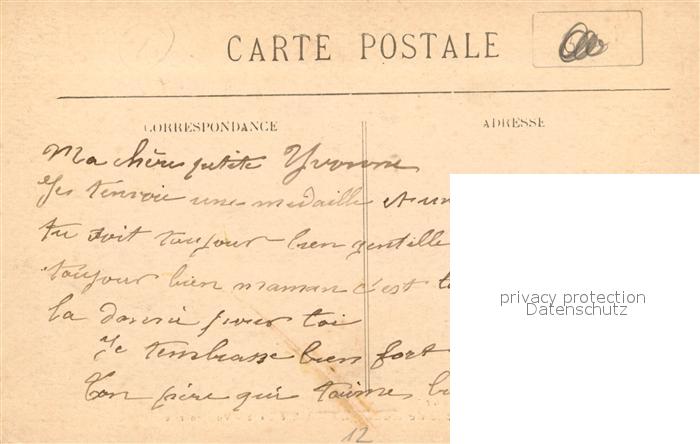 CARTE POSTALE
CORRESPONDANCE
ADRESSE
Ma chère petite Yvonne
Je t'envoie une medaille et un
tu soit toujour bien gentille
toujour bien maman c'est
la donné pour toi
Je tembrasse bien fort
Ton père qui taimes
privacy protection
Datenschutz
12